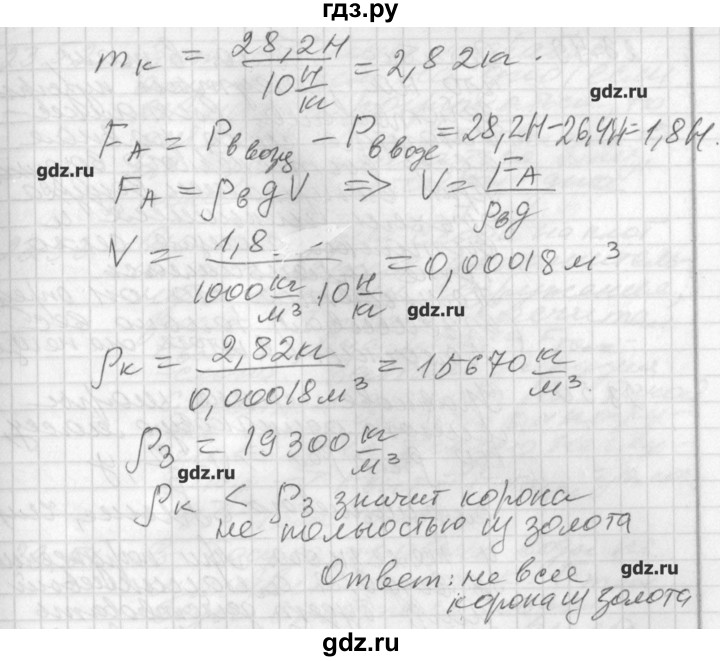 гдз.ру
m_к = 28,2Н / 10 Н/кг = 2,82кг.
gdz.ru
F_A = P_в возд − P_в воде = 28,2Н − 26,4Н = 1,8Н.
gdz.ru
F_A = ρ_в g V ⇒ V = F_A / ρ_в g
V = 1,8 / 1000 кг/м³ · 10 Н/кг = 0,00018 м³
gdz.ru
ρ_к = 2,82кг / 0,00018м³ = 15670 кг/м³.
ρ_з = 19300 кг/м³
gdz.ru
ρ_к < ρ_з значит корона
не полностью из золота
gdz.ru
Ответ: не вся
корона из золота
gdz.ru